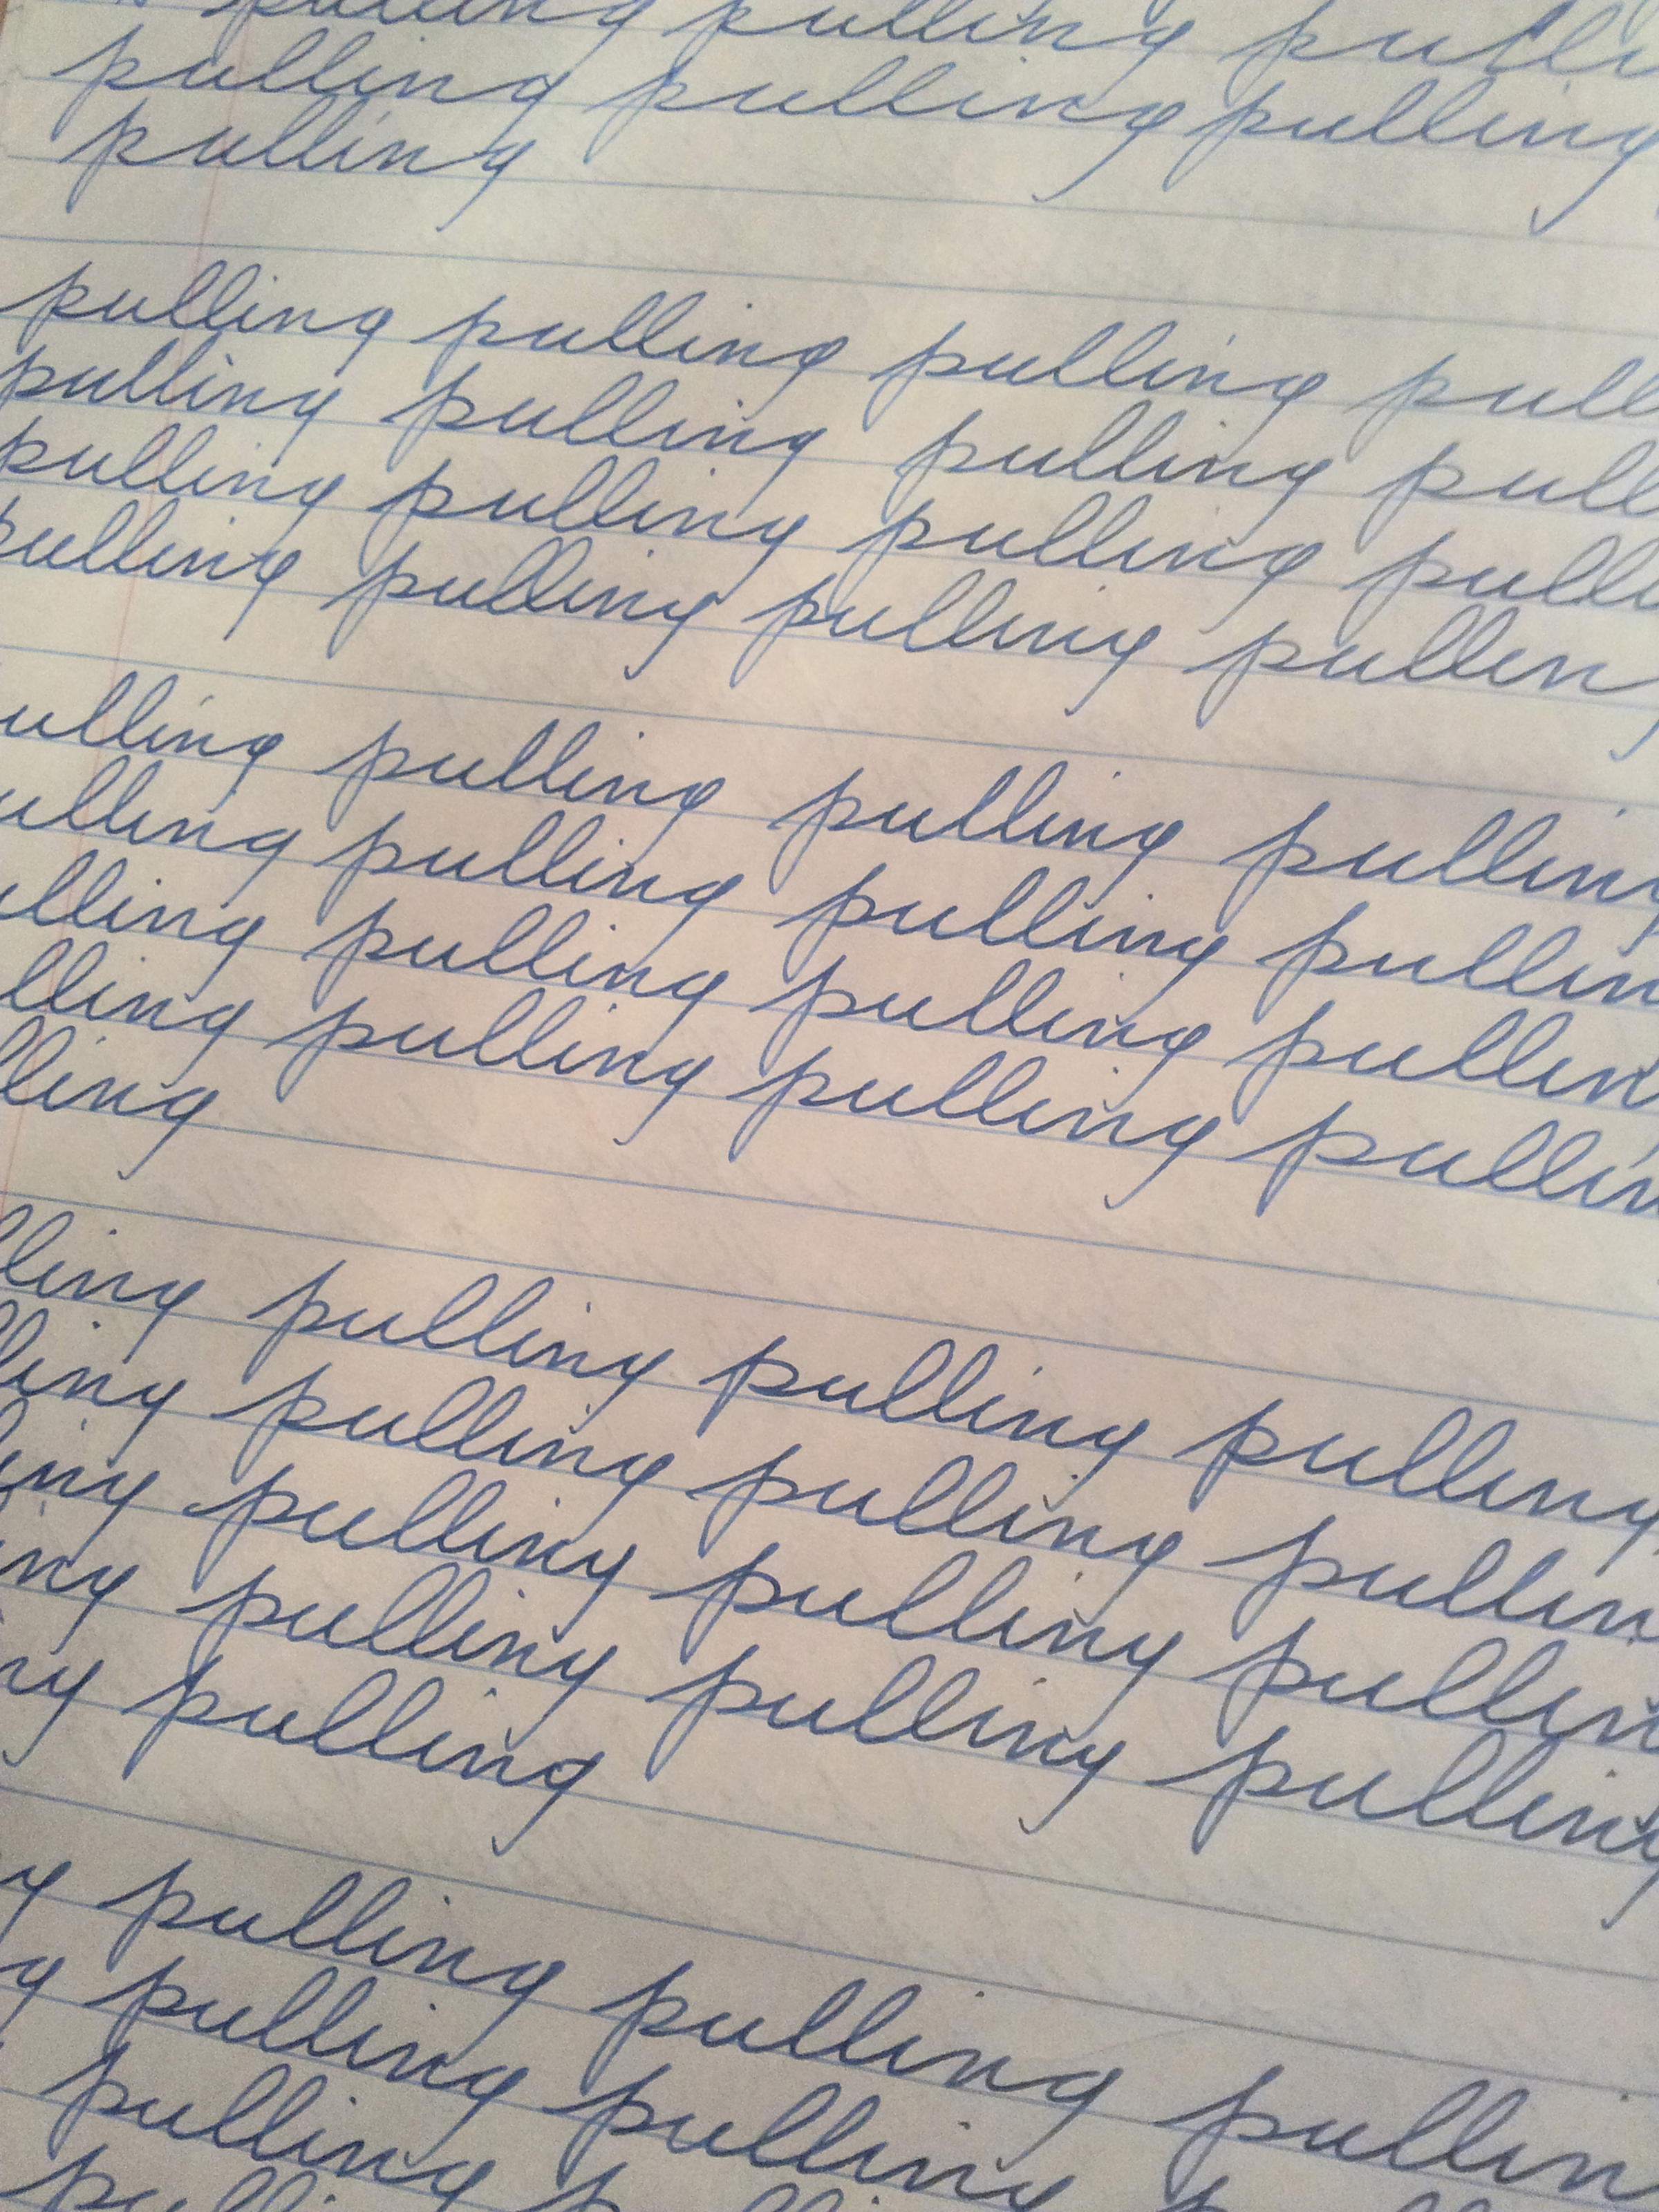 pulling pulling pulli
pulling pulling pulling
pulling
pulling pulling pulling pull
pulling pulling pulling pull
pulling pulling pulling pulli
pulling pulling pulling pulling
ulling pulling pulling pulling
ulling pulling pulling pullin
ulling pulling pulling pullin
lling pulling pulling pullin
lling
lling pulling pulling pulling
ling pulling pulling pullin
ing pulling pulling pullin
ing pulling pulling pulling
ng pulling
g pulling pulling pullin
g pulling pulling
pulling